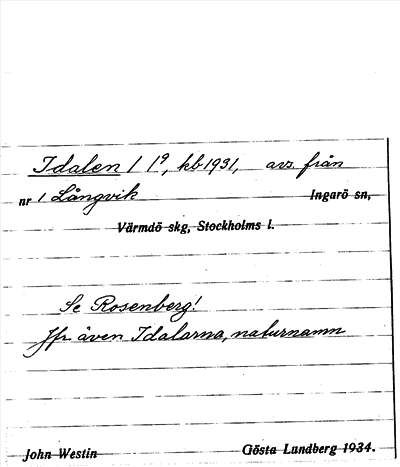 Idalen 1 1⁹, kb 1931, avs. från
nr 1 Långvik Ingarö sn,
Värmdö skg, Stockholms l.
Se Rosenberg!
Jfr även Idalarna, naturnamn
John Westin Gösta Lundberg 1934.